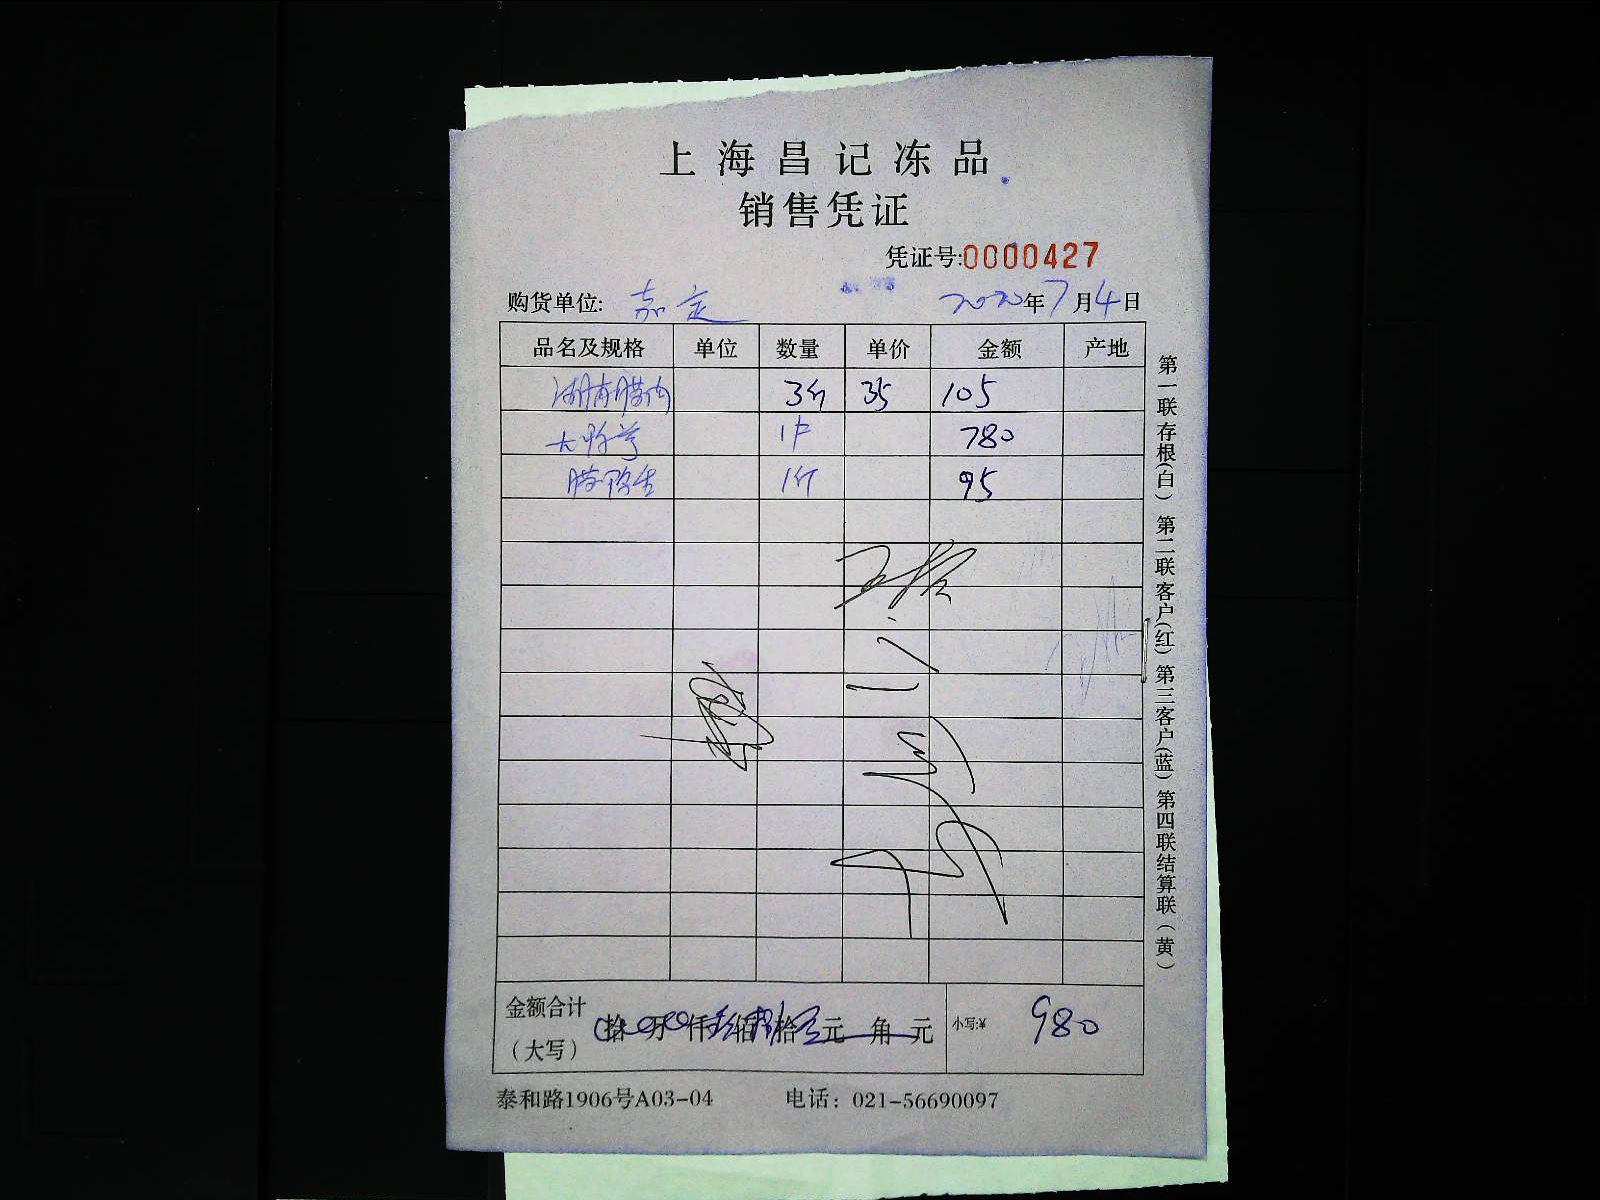 上海昌记冻品
销售凭证
凭证号:0000427
购货单位: 嘉定 2020年7月4日
品名及规格 单位 数量 单价 金额 产地
湖南腊肉 3斤 35 105
1件 780
1斤 95
金额合计
(大写) 拾 万 仟 佰 拾 元 角 元 小写:¥ 980
泰和路1906号A03-04 电话: 021-56690097
第一联存根(白) 第二联客户(红) 第三客户(蓝) 第四联结算联(黄)